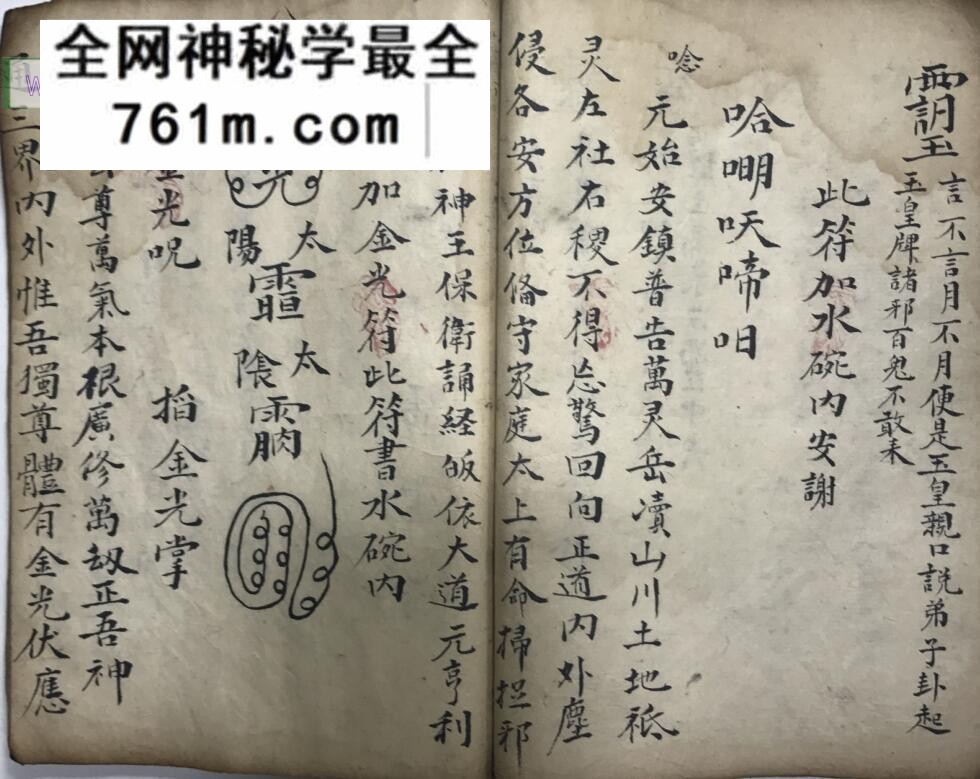 全网神秘学最全
761m.com
言不言月不月便是玉皇親口説弟子卦起
玉皇牌諸邪百鬼不敢耒
此符加水碗内安謝
哈嘲呋啼呾
唸
元始安鎮普告萬灵岳瀆山川土地祗
灵左社右稷不得忩驚回向正道内外塵
侵各安方位俻守家庭太上有命掃捉邪
神王保衛誦経皈依大道元亨利
加金光符此符書水碗内
光
太陽
太陰
光咒 搯金光掌
尊萬氣本根廣修萬刼正吾神
三界内外惟吾獨尊體有金光伏應